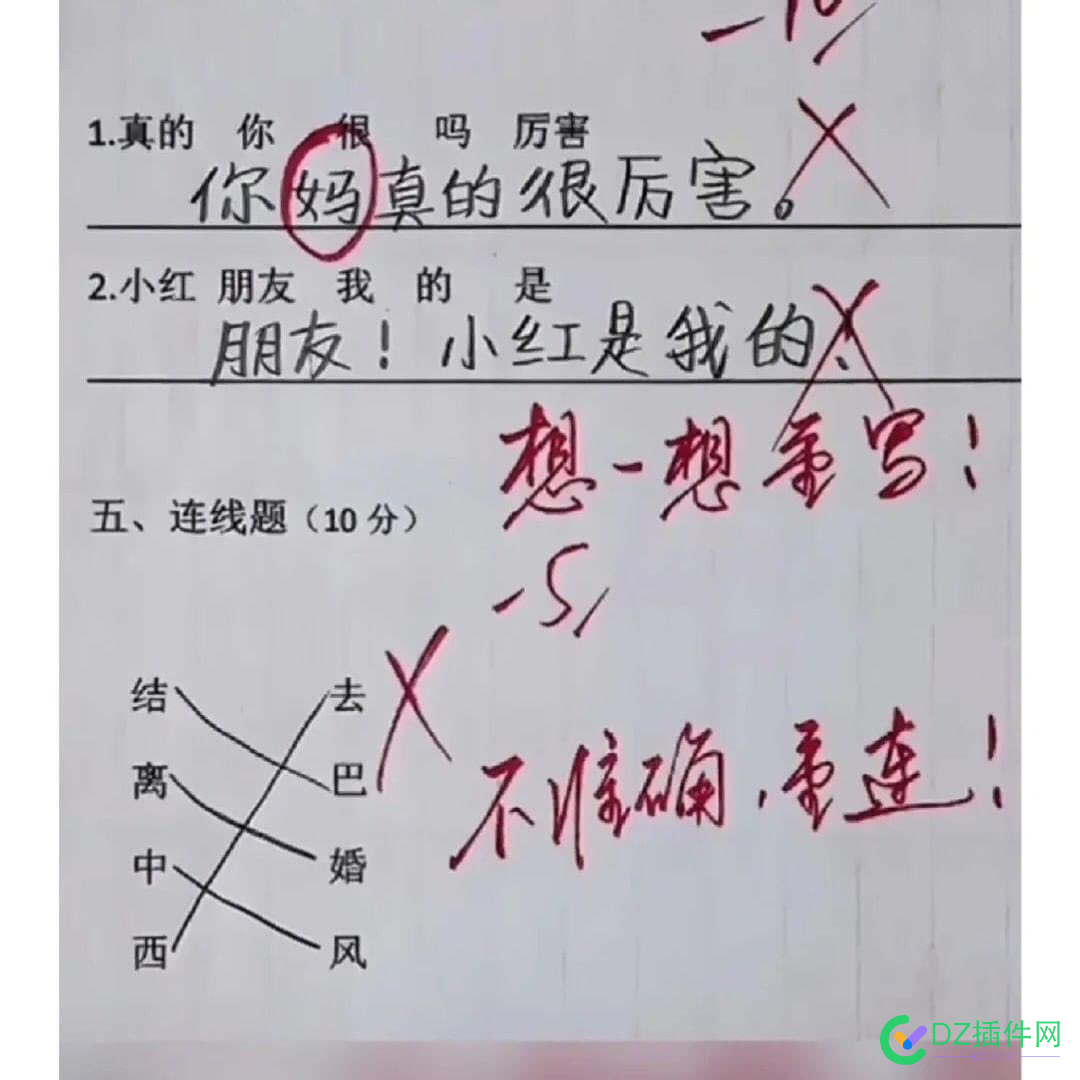 -10
1.真的 你 很 吗 厉害
你妈真的很厉害。
2.小红 朋友 我 的 是
朋友！小红是我的、
想一想重写！
五、连线题（10 分）
-5
结 去
离 巴
不准确，重连！
中 婚
西 风
DZ插件网